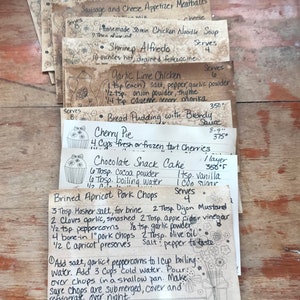 Sausage and Cheese Appetizer Meatballs
Homemade 30min Chicken Noodle Soup
Shrimp Alfredo
Serves
4
Garlic Lime Chicken
Serves
1 tsp each) salt, pepper, garlic powder
1/2 tsp. onion powder, thyme
350°
Bread Pudding with Brandy
Sauce
Cherry Pie
375°
4 Cups fresh or frozen tart Cherries
Chocolate Snack Cake
1 layer
350°F
6 Tbsp Cocoa powder
1 tsp. vanilla
6 Tbsp boiling water
Brined Apricot Pork Chops
Serves
4
3 Tbsp Kosher salt, for brine
2 Tbsp. Dijon Mustard
2 Cloves garlic, smashed
2 Tbsp. apple cider vinegar
1/2 tsp peppercorns
1/8 tsp garlic powder
4 bone-in pork chops
2 Tbsp. olive oil
1/2 C apricot preserves
Salt & pepper to taste
① Add salt, garlic & peppercorns to 1 cup boiling
water. Add 3 cups cold water. Pour
over chops in a shallow pan. Make
sure chops are submerged, cover and
refrigerate over night.